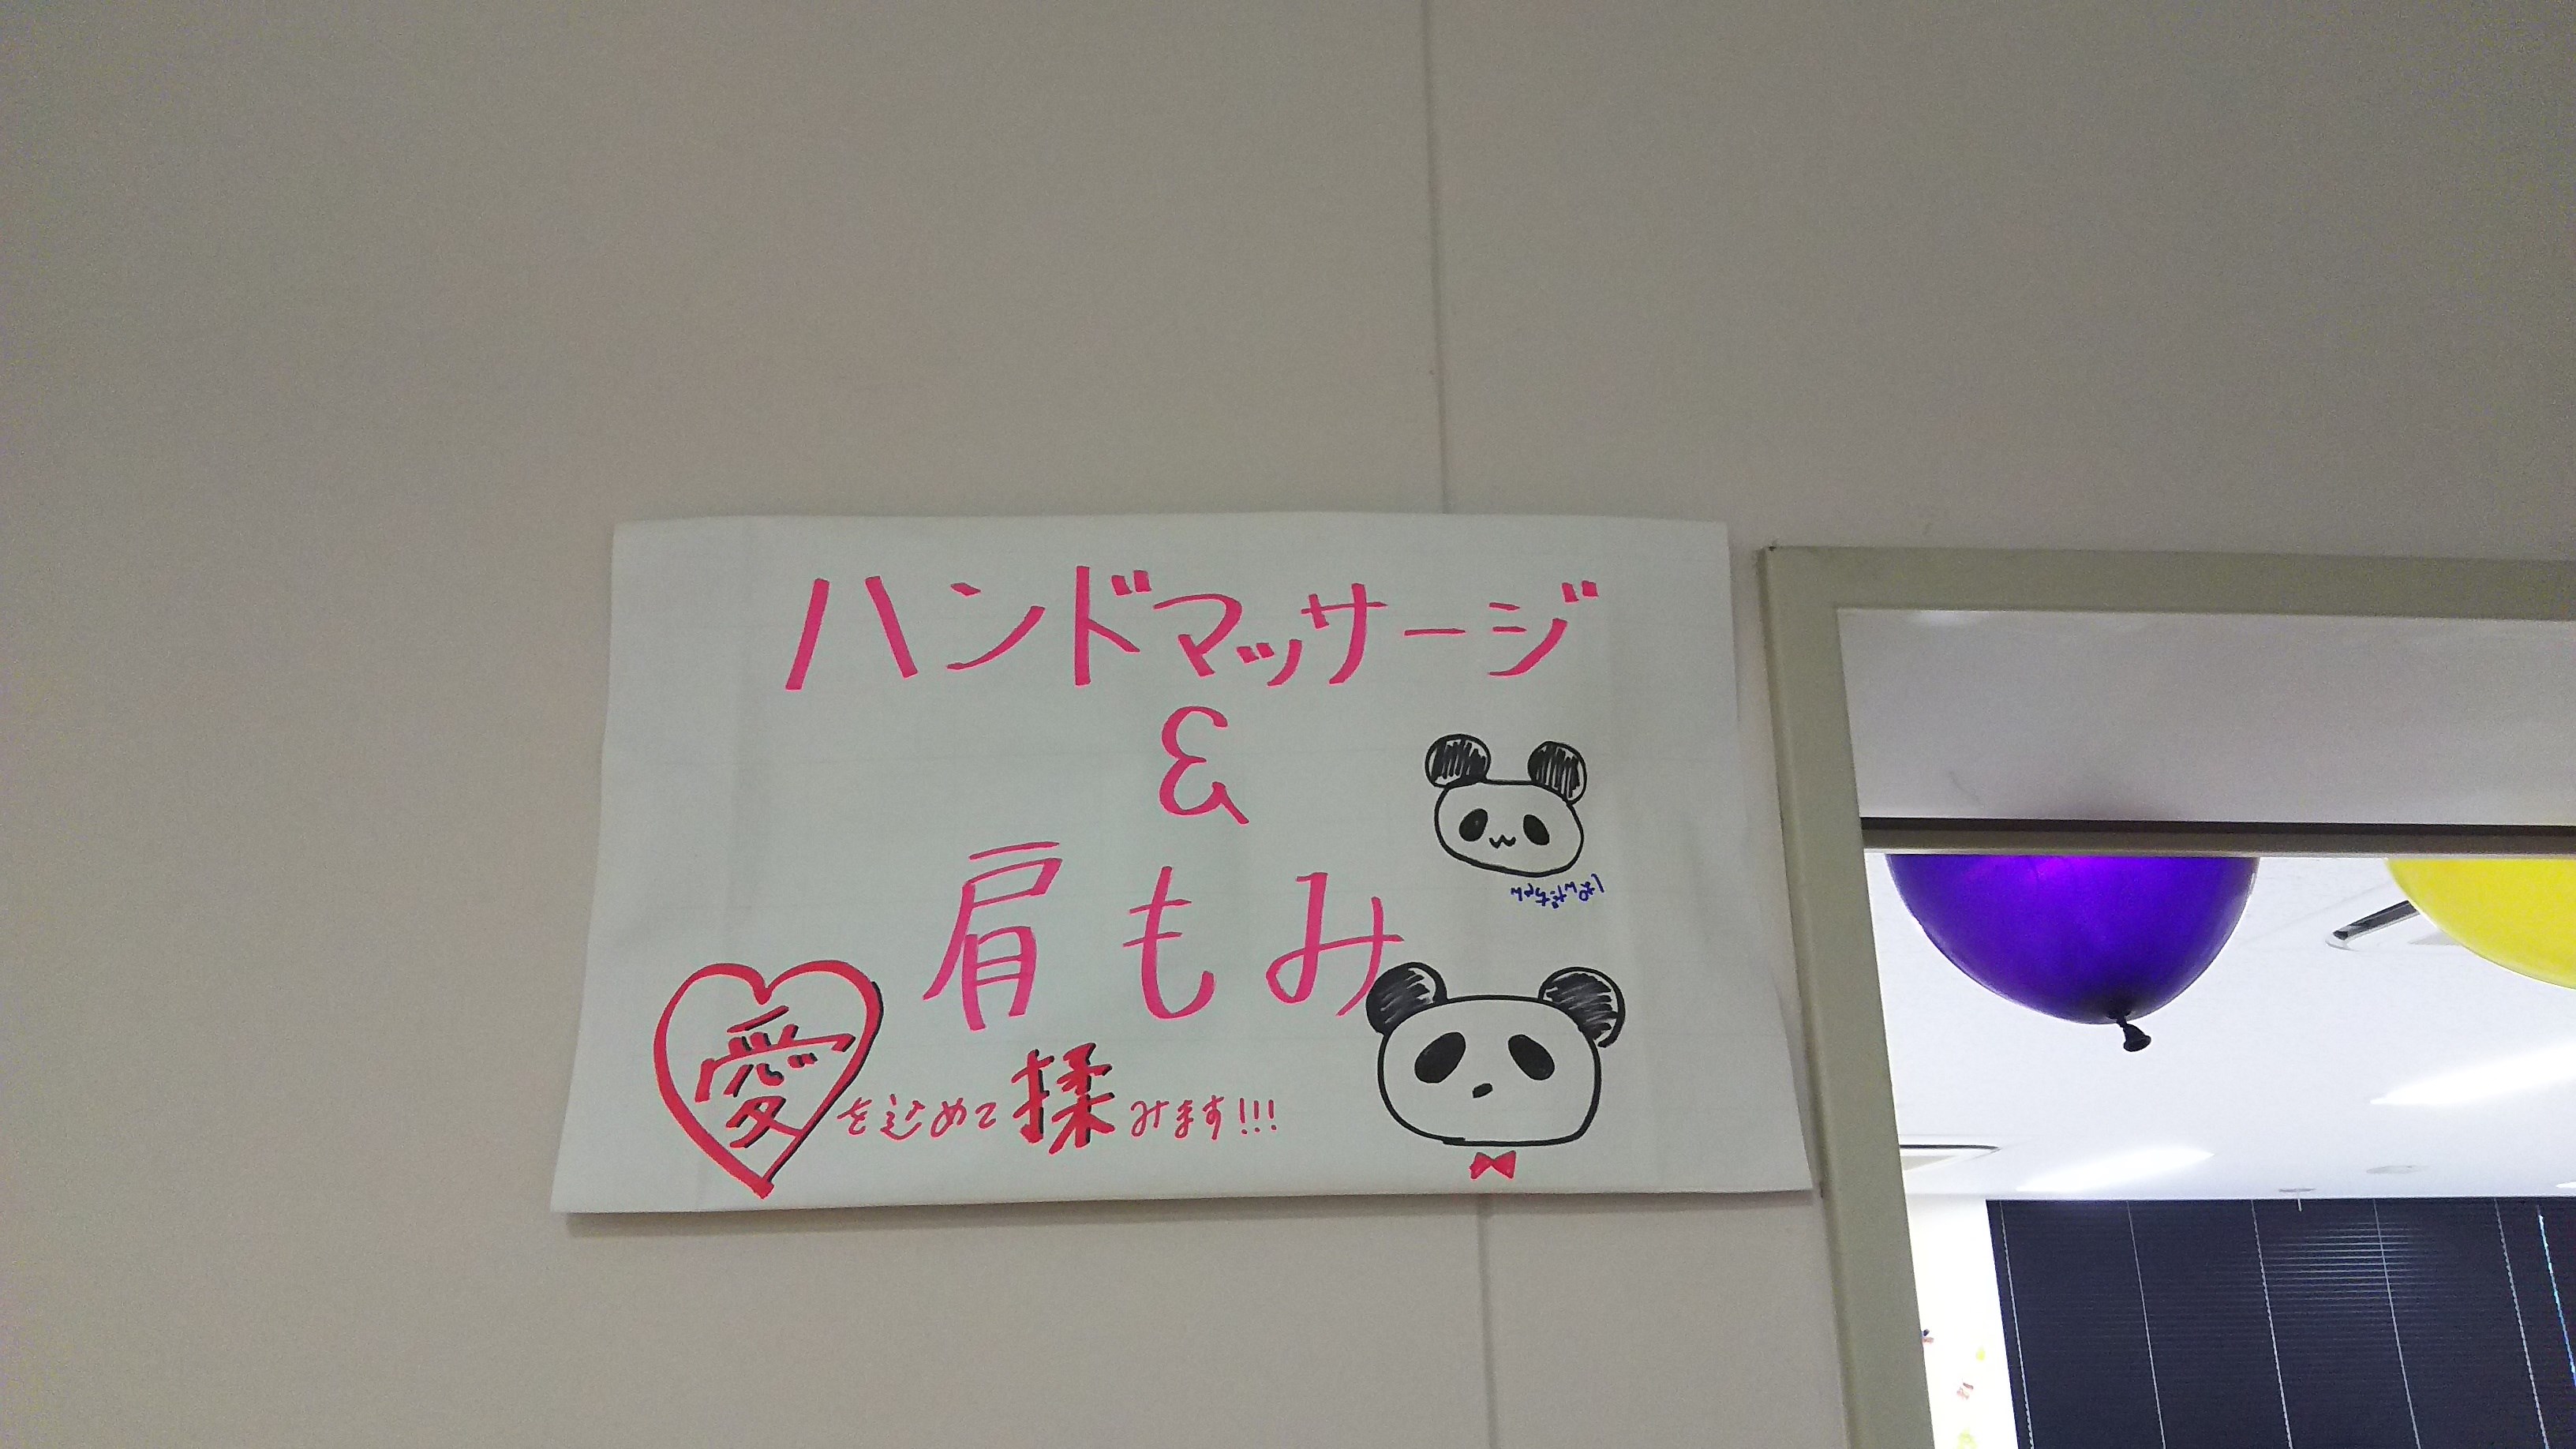 ハンドマッサージ
&
肩もみ
愛を込めて揉みます!!!